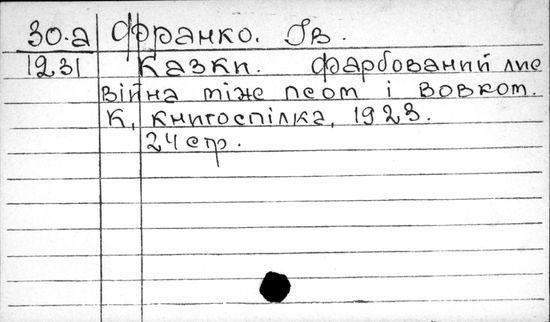 30.а Франко. Ів.
1231 Казки. Фарбований лис
війна між псом і вовком.
К, книгоспілка, 1923.
24 стр.